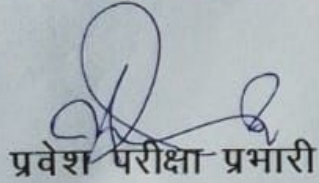 प्रवेश परीक्षा प्रभारी